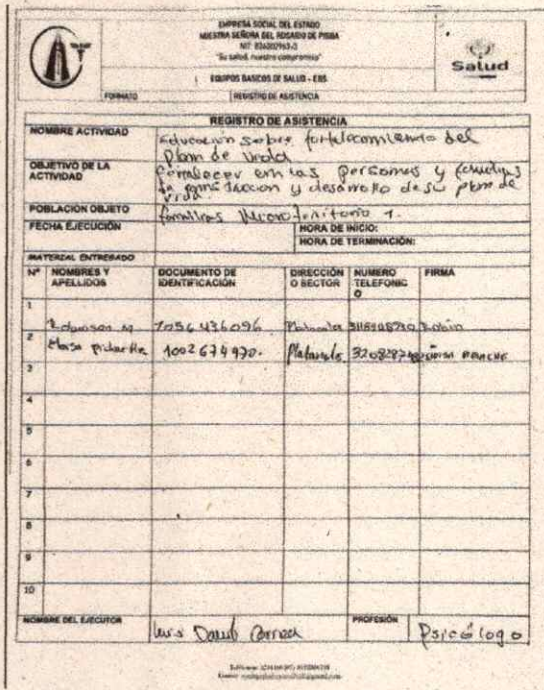 EMPRESA SOCIAL DEL ESTADO
NUESTRA SEÑORA DEL ROSARIO DE PISBA
"Su salud, nuestro compromiso"
EQUIPOS BASICOS DE SALUD - EBS
FORMATO REGISTRO DE ASISTENCIA
Salud
REGISTRO DE ASISTENCIA
NOMBRE ACTIVIDAD Educación sobre fortalecimiento del
Plan de vida
OBJETIVO DE LA ACTIVIDAD Fortalecer en las personas y familias
la construccion y desarrollo de su plan de
vida
POBLACION OBJETO familias Microterritorio 1.
FECHA EJECUCIÓN HORA DE INICIO:
HORA DE TERMINACIÓN:
MATERIAL ENTREGADO
Nº NOMBRES Y APELLIDOS DOCUMENTO DE IDENTIFICACIÓN DIRECCIÓN O SECTOR NUMERO TELEFONICO FIRMA
1 Robinson M 1056436096
2 1002674970.
3
4
5
6
7
8
9
10
NOMBRE DEL EJECUTOR Luis David PROFESIÓN Psicólogo